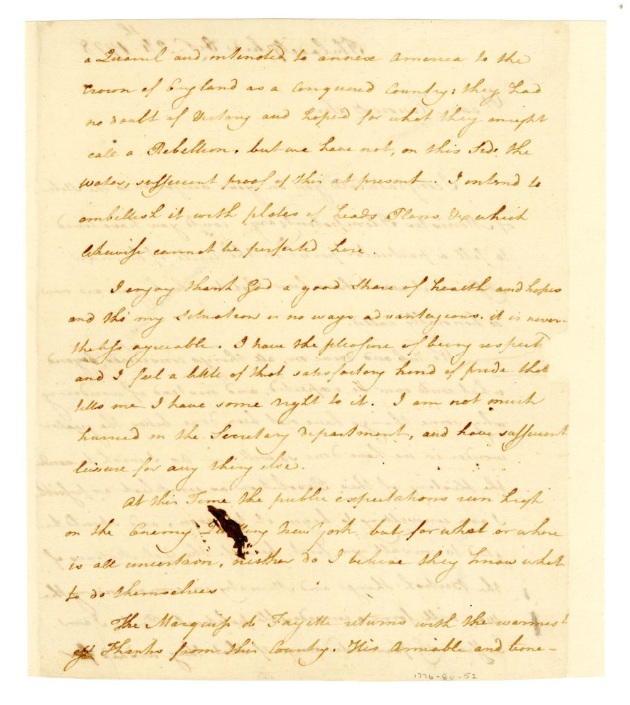 a Quarrel and intended to annex America to the
Crown of England as a Conquered Country; they had
no doubt of Victory and hoped for what they might
call a Rebellion, but we have not, on this Side the
water, sufficient proof of this at present. I intend to
embellish it with plates of heads Plans &c which
likewise cannot be perfected here.
I enjoy thank God a good Share of health and hopes
and tho' my Situation is no ways advantageous, it is never-
theless agreeable. I have the pleasure of being respectd
and I feel a little of that satisfactory kind of pride that
tells me I have some right to it. I am not much
hurried in the Secretary department, and have sufficient
leisure for any thing else.
At this Time the public expectations run high
on the Enemy New York but for what or where
is all uncertain, neither do I believe they know what
to do themselves
The Marquiss de Fayette returns with the warmest
Thanks from this Country. His Amiable and bene-
1776-80-52